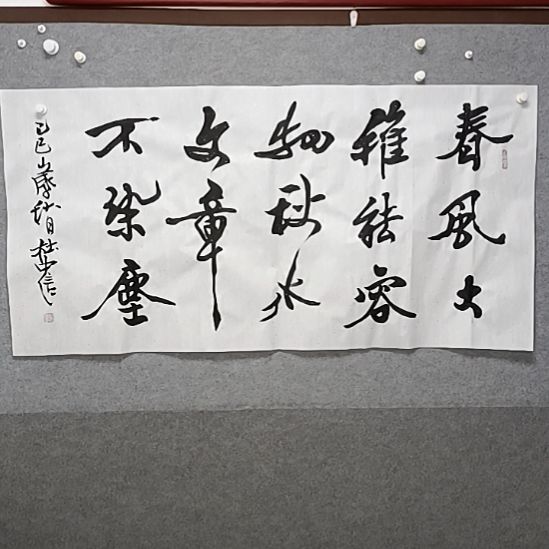 春風大
雅能容
物秋水
文章
不染塵
乙巳歲 月杜 信